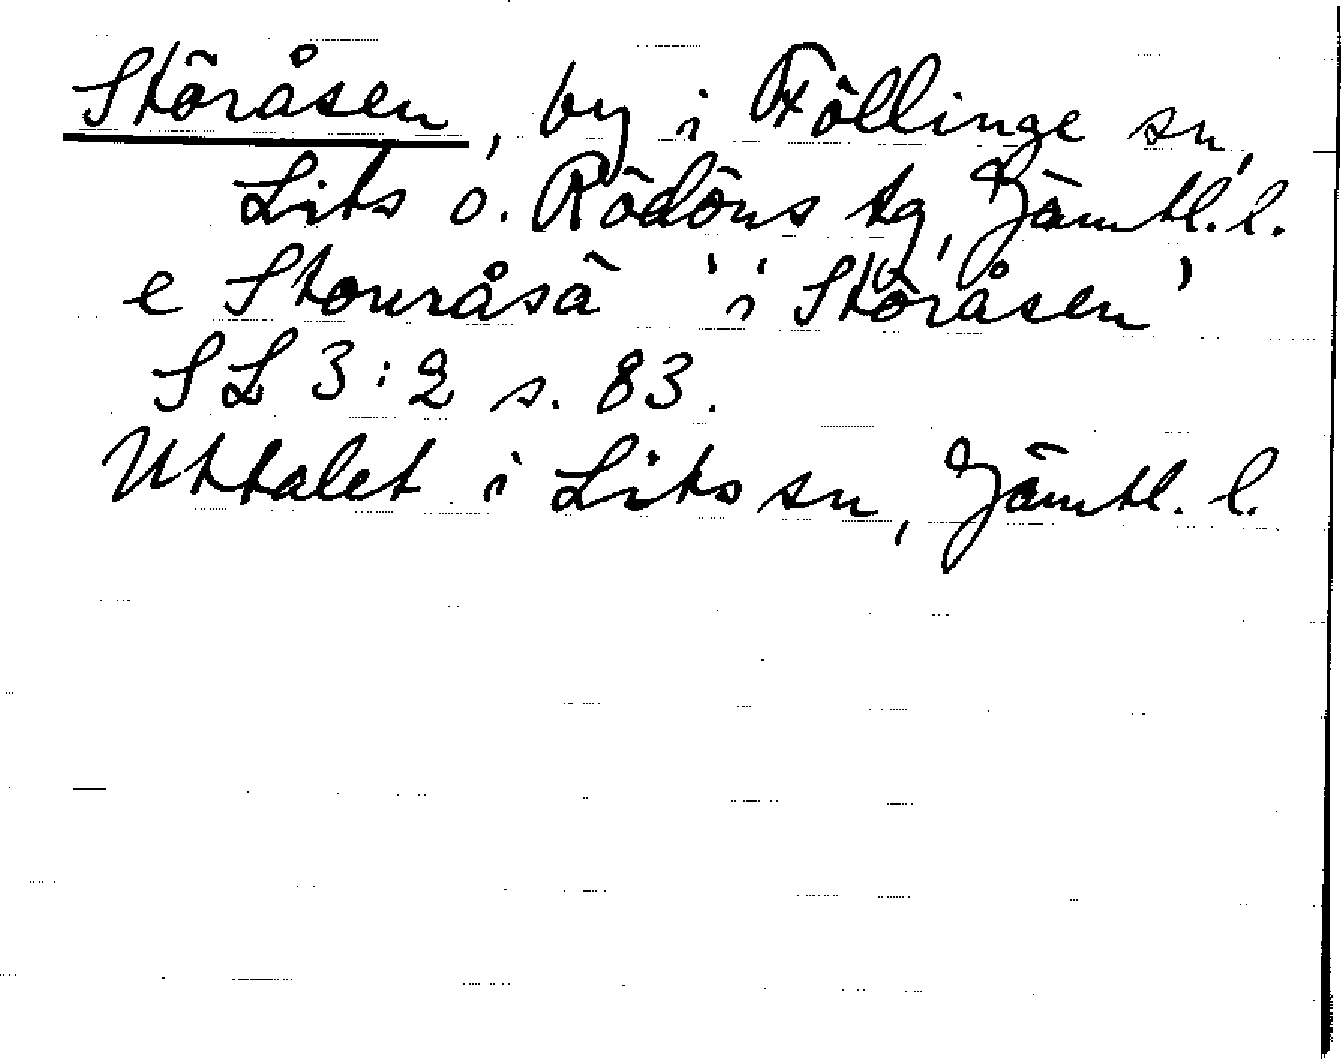 Störåsen, by i Föllinge sn,
Lits o. Rödöns tg, Jämtl. l.
e Stouråsä 'i Störåsen'
SL 3:2 s. 83.
Uttalet i Lits sn, Jämtl. l.